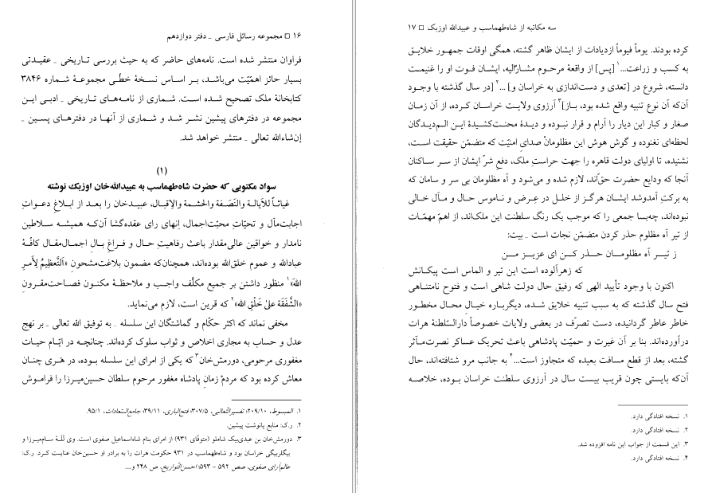 ۱۶ □ مجموعه رسائل فارسی _ دفتر دوازدهم
فراوان منتشر شده است. نامه‌های حاضر که به حیث بررسی تاریخی _ عقیدتی
بسیار حائز اهمّیت می‌باشد، بر اساس نسخهٔ خطّی مجموعهٔ شماره ۳۸۴۶
کتابخانهٔ ملک تصحیح شده است. شماری از نامه‌های تاریخی _ ادبی این
مجموعه در دفترهای پیشین نشر شد و شماری از آنها در دفترهای پسین _
إن‌شاءالله تعالی _ منتشر خواهد شد.
(۱)
سواد مکتوبی که حضرت شاه‌طهماسب به عبیدالله‌خان اوزبک نوشته
غیاثاً للأیالة والنّصفة والحشمة والإقبال، عبیدخان را بعد از ابلاغ دعواتِ
اجابت‌مآل و تحیّاتِ محبّت‌اجمال، إنهای رای عقده‌گشا آن‌که همیشه سلاطین
نامدار و خواقین عالی‌مقدار باعث رفاهیتِ حال و فراغِ بالِ اجمال‌مقال کافّهٔ
عبادالله و عموم خلق‌الله بوده‌اند، همچنان‌که مضمون بلاغت‌مشحونِ «التَّعظیمُ لِأمرِ
اللهِ»۱ منظور داشتن بر جمیع مکلّف واجب و ملاحظهٔ مکنون فصاحت‌مقرونِ
«الشَّفَقَة علیٰ خَلْقِ اللهِ»۲ که قرین است، لازم می‌نماید.
مخفی نماند که اکثر حکّام و گماشتگان این سلسله _ به توفیق الله تعالی _ بر نهج
عدل و حساب به مجاری اخلاص و ثواب سلوک کرده‌اند. چنانچه در ایّام حیات
مغفوری مرحومی، دورمش‌خان۳ که یکی از امرای این سلسله بوده، در هری چنان
معاش کرده بود که مردمْ زمانِ پادشاه مغفور مرحوم سلطان حسین‌میرزا را فراموش
۱. المبسوط، ۲۰۹/۱۰؛ تفسیرالثعالبی، ۳۰۷/۵؛ فتح‌الباری، ۳۹/۱۱؛ جامع‌السّعادات، ۹۵/۱.
۲. رک: منابع پانوشت پیشین.
۳. دورمش‌خان بن عبدی‌بیک شاملو (متوفّای ۹۳۱) از امرای بنام شاه‌اسماعیل صفوی است. وی للهٔ سام‌میرزا و
بیگلربیگی خراسان بود و شاه‌طهماسب در ۹۳۱ حکومت هرات را به برادر او حسین‌خان عنایت کرد. رک:
عالم‌آرای صفوی، صص ۵۹۲ – ۵۹۳؛ احسن‌التواریخ، ص ۲۴۸ و....
سه مکاتبه از شاه‌طهماسب و عبیدالله اوزبک □ ۱۷
کرده بودند. یوماً فیوماً ازدیادات از ایشان ظاهر گشته، همگی اوقات جمهور خلایق
به کسب و زراعت...۱ [پس] از واقعهٔ مرحوم مشارٌالیه، ایشان فوت او را غنیمت
دانسته، شروع در [تعدی و دست‌اندازی به خراسان و] ...۲ [در سال گذشته با وجود
آن‌که آن نوع تنبیه واقع شده بود، باز]۳ آرزوی ولایت خراسان کرده، از آن زمان
صغار و کبار این دیار را آرام و قرار نبوده و دیدهٔ محنت‌کشیدهٔ این الم‌دیدگان
لحظه‌ای نغنوده و گوش هوش این مظلومان صدای امنیّت که متضمّن حقیقت است،
نشنیده، تا اولیای دولت قاهره را جهت حراستِ ملک، دفع شرّ ایشان از سر ساکنان
آنجا که ودایع حضرت حق‌اند، لازم شده و می‌شود و آه مظلومان بی سر و سامان که
به برکتِ آمدوشد ایشان هرگز از خلل در عِرض و ناموس حال و مآل خالی
نبوده‌اند، چه‌بسا جمعی را که موجب یک رنگ سلطنت این ملک‌اند، از اهمّ مهمّات
از تیر آه مظلوم حذر کردن متضمّن نجات است _ بیت:
ز تیر آه مظلومان حذر کن ای عزیز من
که زهرآلوده است این تیر و الماس است پیکانش
اکنون با وجود تأیید الهی که رفیق حال دولت شاهی است و فتوح نامتناهی
فتح سال گذشته که به سبب تنبیه خلایق شده، دیگرباره خیالِ محال مخطور
خاطر عاطر گردانیده، دست تصرّف در بعضی ولایات خصوصاً دارالسّلطنهٔ هرات
درآورده‌اند. بنا بر آن غیرت و حمیّت پادشاهی باعث تحریک عساکر نصرت‌مآثر
گشته، بعد از قطع مسافت بعیده که متجاوز است...۴ به جانب مرو شتافته‌اند، حال
آن‌که بایستی چون قریب بیست سال در آرزوی سلطنت خراسان بوده، خلاصه
۱. نسخه افتادگی دارد.
۲. نسخه افتادگی دارد.
۳. این قسمت از جواب این نامه افزوده شد.
۴. نسخه افتادگی دارد.